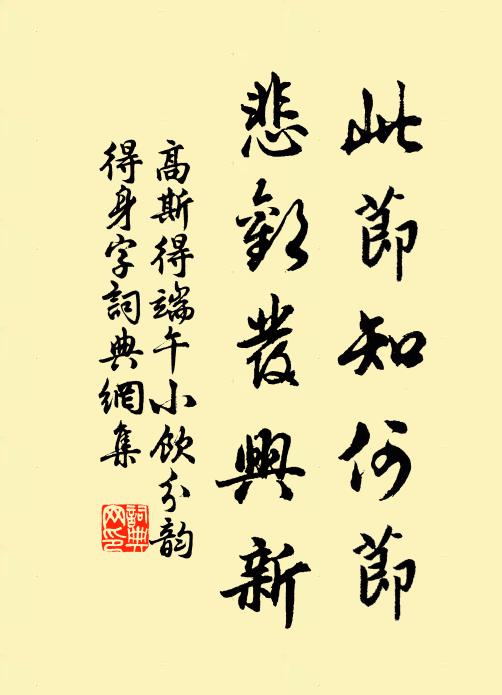 此節知何節
悲歡發興新
高斯得端午小飲分韵
得身字詞典網集
詞典
网印